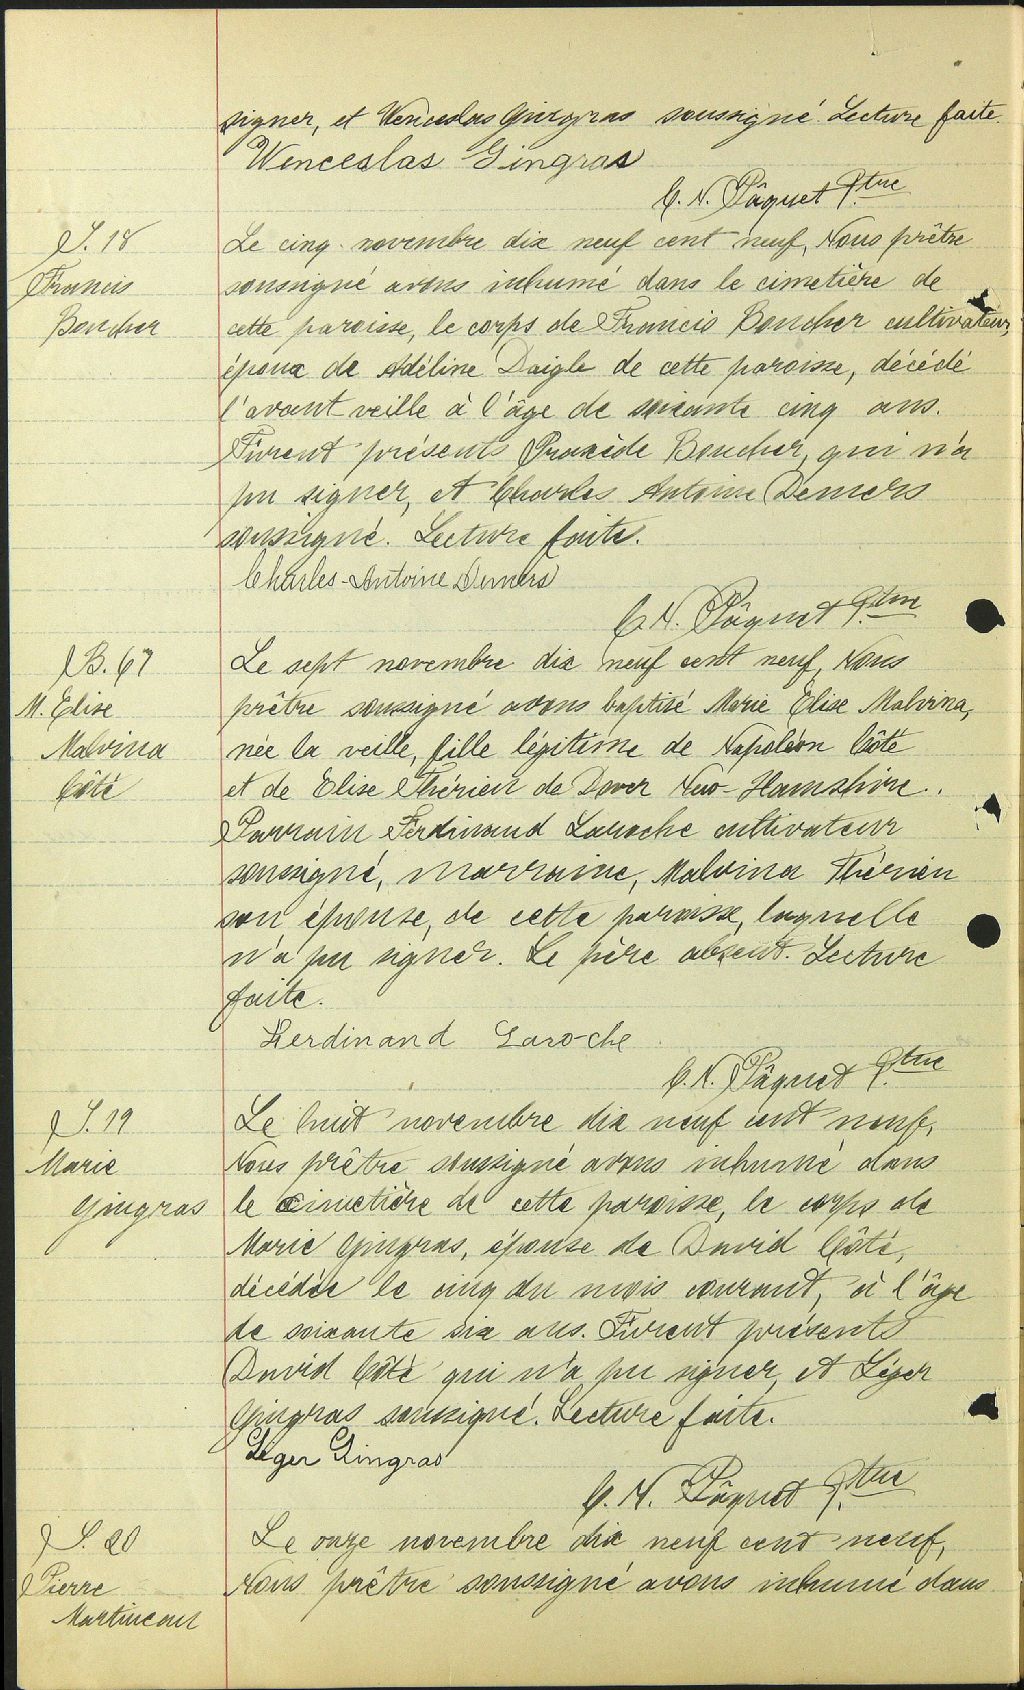 signer, et Wenceslas Gingras soussigné. Lecture faite.
Wenceslas Gingras
C. N. Pâquet Ptre
S. 18
Francis
Boucher
Le cinq novembre dix neuf cent neuf, Nous prêtre
soussigné avons inhumé dans le cimetière de
cette paroisse, le corps de Francis Boucher cultivateur,
époux de Adéline Daigle de cette paroisse, décédé
l'avant veille à l'âge de soixante cinq ans.
Furent présents Praxède Boucher, qui n'a
pu signer, et Charles Antoine Demers
soussigné. Lecture faite.
Charles-Antoine Demers
C. N. Pâquet Ptre
B. 67
M. Elise
Malvina
Côté
Le sept novembre dix neuf cent neuf, Nous
prêtre soussigné avons baptisé Marie Elise Malvina,
née la veille, fille légitime de Napoléon Côté
et de Elise Thérien de Dover New-Hamshire.
Parrain Ferdinand Laroche cultivateur
soussigné, marraine, Malvina Thérien
son épouse, de cette paroisse, laquelle
n'a pu signer. Le père absent. Lecture
faite.
Ferdinand Laroche
C. N. Pâquet Ptre
S. 19
Marie
Gingras
Le huit novembre dix neuf cent neuf,
Nous prêtre soussigné avons inhumé dans
le cimetière de cette paroisse, le corps de
Marie Gingras, épouse de David Côté,
décédée le cinq du mois courant, à l'âge
de soixante six ans. Furent présents
David Côté qui n'a pu signer, et Léger
Gingras soussigné. Lecture faite.
Léger Gingras
C. N. Pâquet Ptre
S. 20
Pierre
Martineau
Le onze novembre dix neuf cent neuf,
Nous prêtre soussigné avons inhumé dans